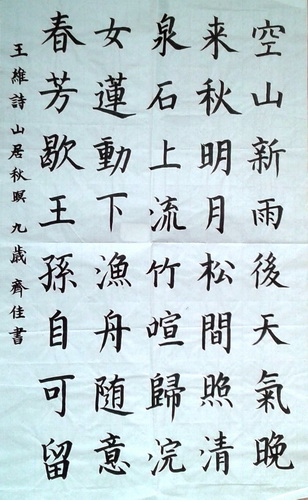 空山新雨後天氣晚
来秋明月松間照清
泉石上流竹喧歸浣
女蓮動下漁舟随意
春芳歇王孫自可留
王維詩山居秋暝九歲齊佳書